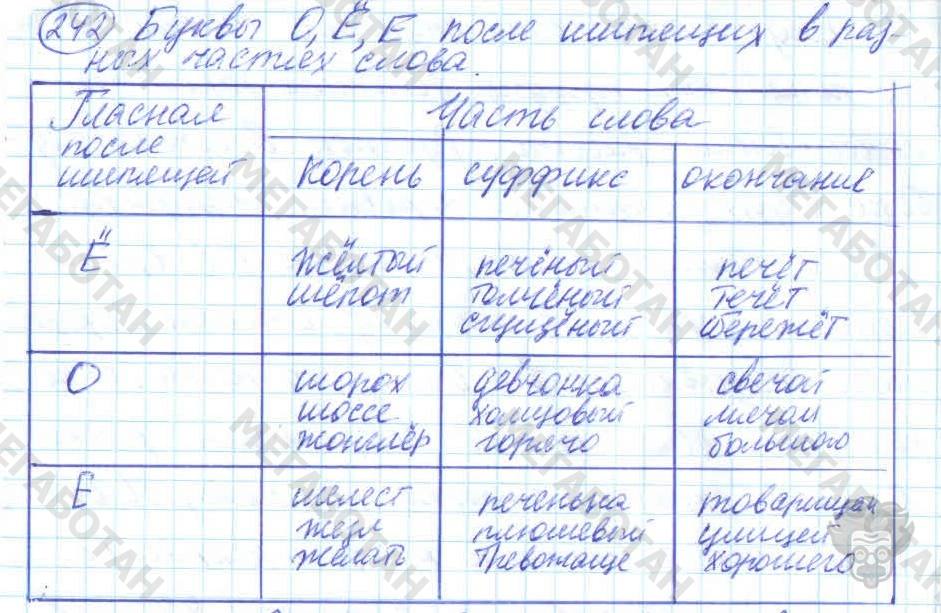 242 Буквы О, Ё, Е после шипящих в раз-
ных частях слова.
Гласная Часть слова
после
шипящей корень суффикс окончание
Ё жёлтый печёный печёт
шёпот толчёный течёт
бережёт
О шорох девчонка свечой
шоссе холщовый мячом
жонглёр горячо большого
Е шелест печенька товарищем
жезл плюшевый
желать тревожаще хорошего
МЕГАБОТАН